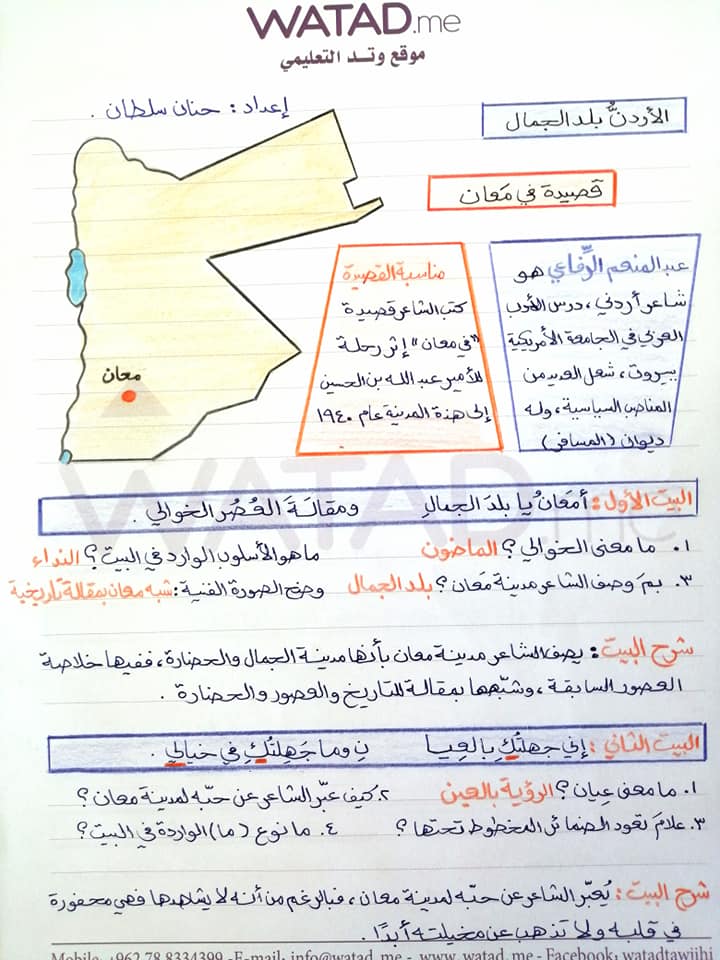 WATAD.me
موقع وتد التعليمي
إعداد: حنان سلطان.
الأردنُّ بلد الجمال
قصيدة في مَعان
عبد المنعم الرِّفاعي هو
شاعر أردني، درس الأدب
العربي في الجامعة الأمريكية
ببيروت، شغل العديد من
المناصب السياسية، وله
ديوان (المسافر)
مناسبة القصيدة
كتب الشاعر قصيدة
"في معان" إثر رحلة
للأمير عبد الله بن الحسين
إلى هذة المدينة عام ١٩٤٠
معان
البيت الأول: أمَعَانُ يا بلدَ الجمالِ ومقالةَ العُصُر الخوالي.
١. ما معنى الخوالي؟ الماضون ما هو الأسلوب الوارد في البيت؟ النداء
٣. بمَ وصف الشاعر مدينة مَعان؟ بلد الجمال وضح الصورة الفنية: شبه معان بمقالة تاريخية
شرح البيت: يصف الشاعر مدينة معان بأنها مدينة الجمال والحضارة، ففيها خلاصة
العصور السابقة، وشبّهها بمقالة للتاريخ والعصور والحضارة.
البيت الثاني: إني جهلتُكِ بالعِيا نِ وما جَهِلتُكِ في خيالي.
١. ما معنى عِيان؟ الرؤية بالعين ٢. كيف عبّر الشاعر عن حبّه لمدينة معان؟
٣. علامَ تعود الضمائر المخطوط تحتها؟ ٤. ما نوع (ما) الواردة في البيت؟
شرح البيت: يُعبّر الشاعر عن حبّه لمدينة معان، فبالرغم من أنه لا يشاهدها فهي محفورة
في قلبه ولا تذهب عن مخيلته أبدًا.
Mobile: +962 78 8334399 -E-mail: info@watad.me - www.watad.me - Facebook: watadtawjihi